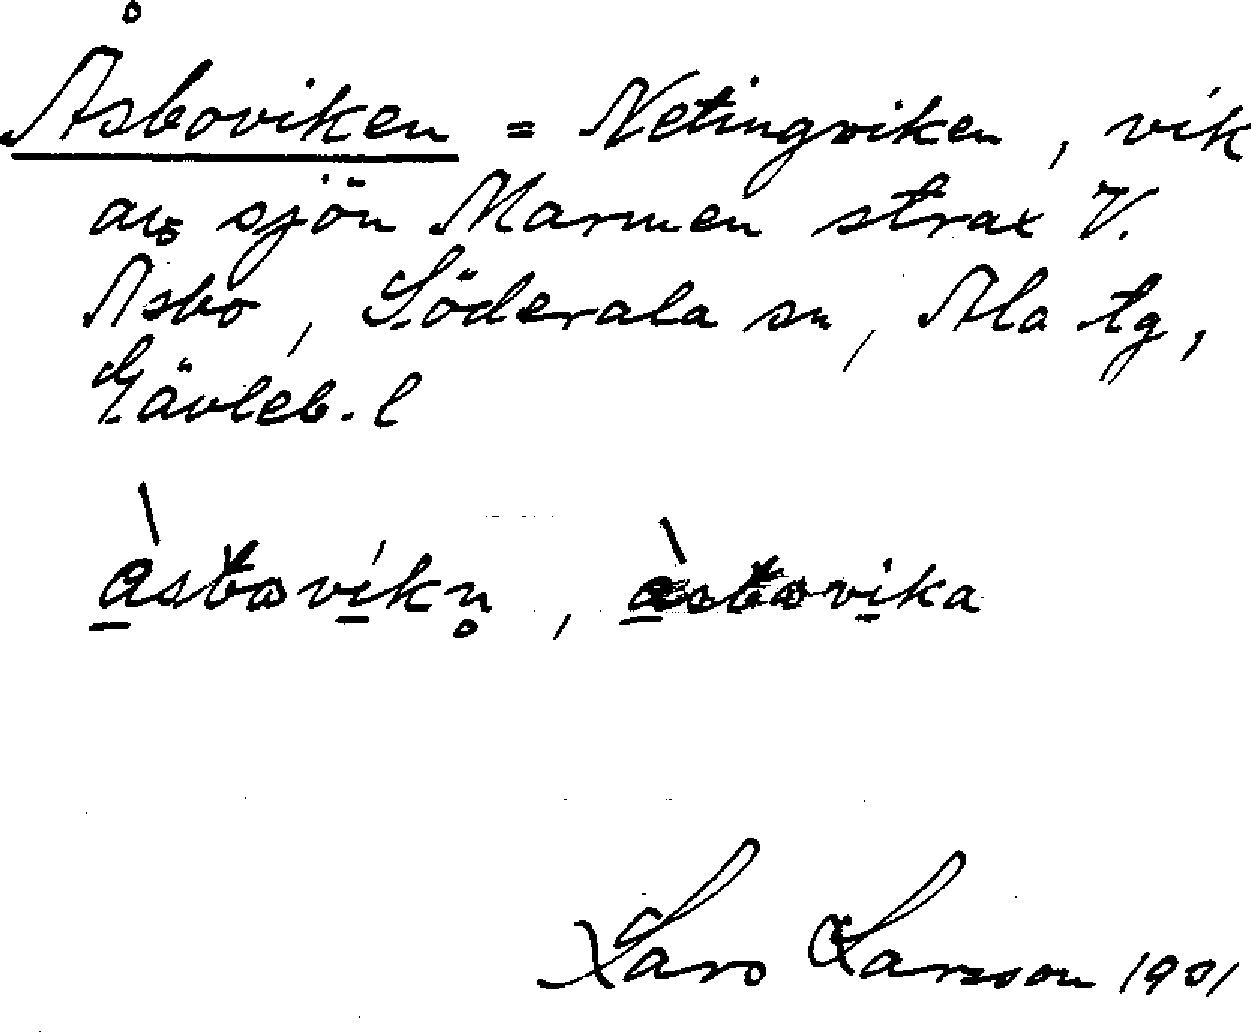 Åsboviken = Netingviken, vik
av sjön Marmen strax V.
Asbo, Söderala sn, Ala tg,
Gävleb. l
Lars Larsson 1901